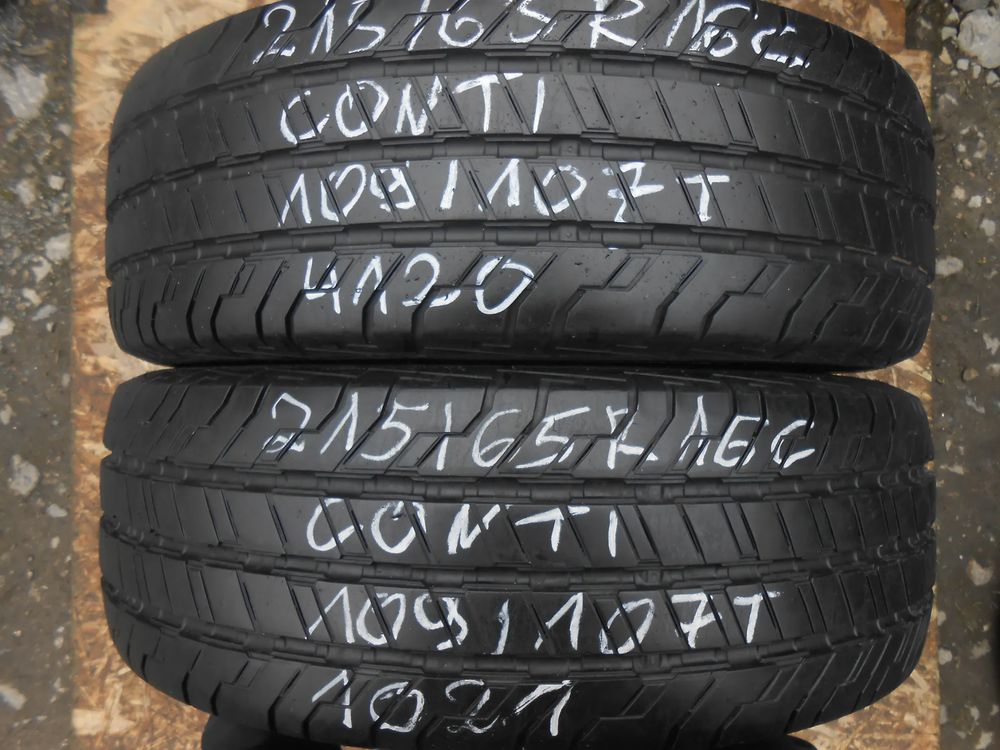 215/65R16C
CONTI
109/107T
4120
215/65R16C
CONTI
109/107T
1021